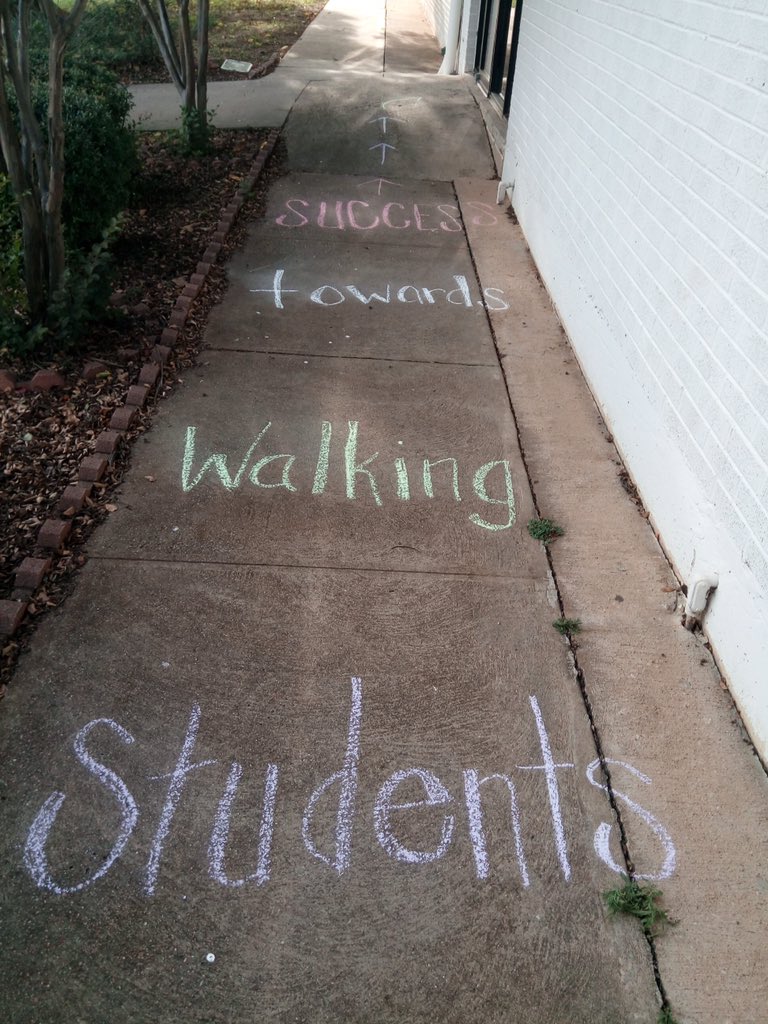 Students
Walking
towards
SUCCESS